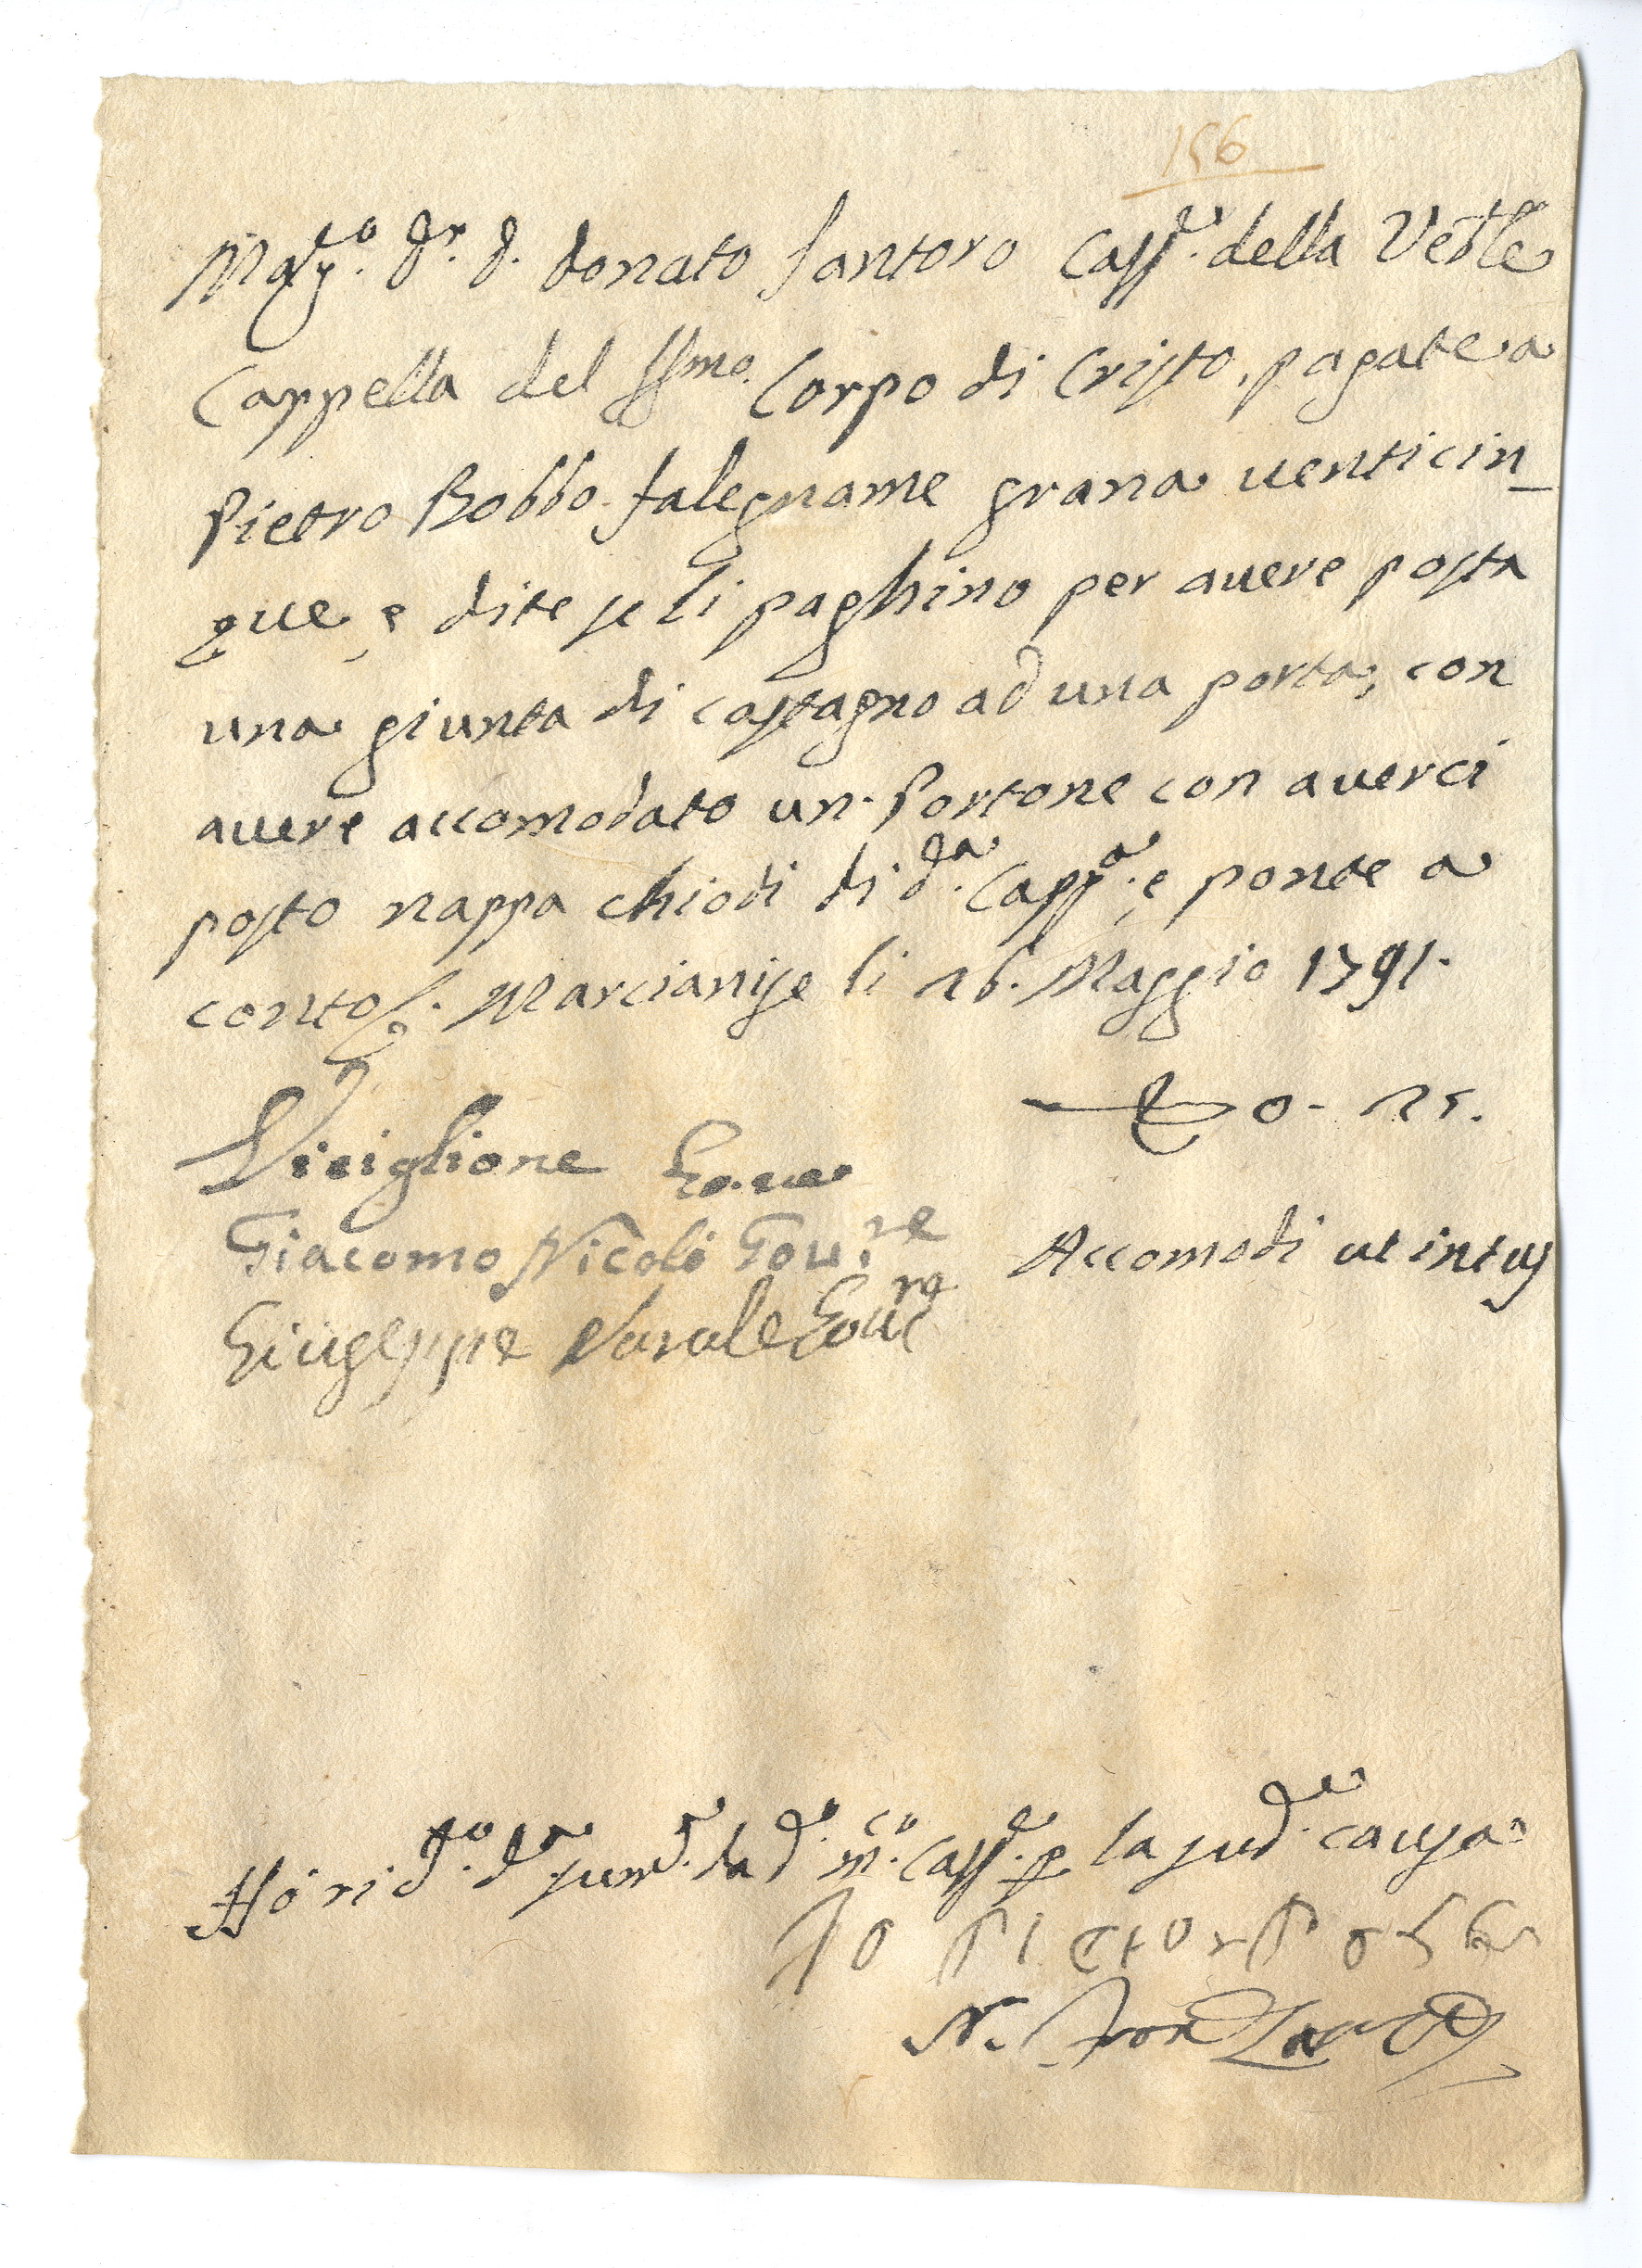 156
Mag.co D.r D. Donato Santoro Cass.e della Ven.le
Cappella del SSmo. Corpo di Cristo, pagate a
Pietro Bobbo falegname grana venticin_
que, e dite se li paghino per avere posta
una giunta di castagno ad una porta, con
avere accomodato un Portone con averci
posto nappa chiodi di d.a Capp.a, e ponte a
conto. Marcianise li 26. Maggio 1791.
0 - 25.
Viciglione Gov.re
Giacomo Nicolò Gov.re Accomodi ut intus
Giuseppe Gov.re
Hò ric.to d.a sum.a da d.o m.co Cass.e p. la sud.a causa
Io Pietro
N.